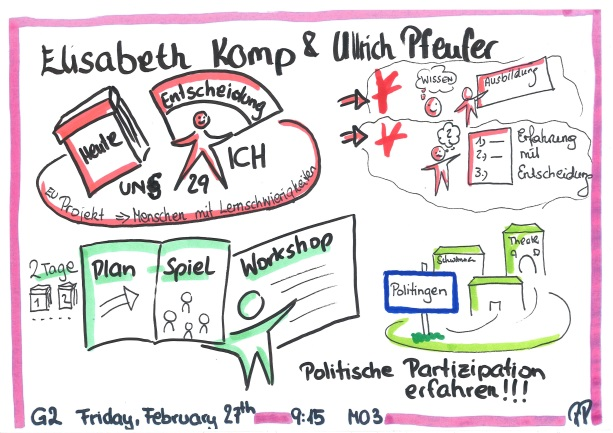 Elisabeth Komp & Ullrich Pfeufer
Heute
Entscheidung
UNS
29
ICH
EU Projekt => Menschen mit Lernschwierigkeiten
WISSEN
Ausbildung
?
1.)
2.)
3.)
Erfahrung
mit
Entscheidung
2 Tage
1 2
Plan Spiel
Workshop
Schwimm
Theater
Politingen
Politische Partizipation
erfahren!!!
G2 Friday, February 27th 9:15 M03